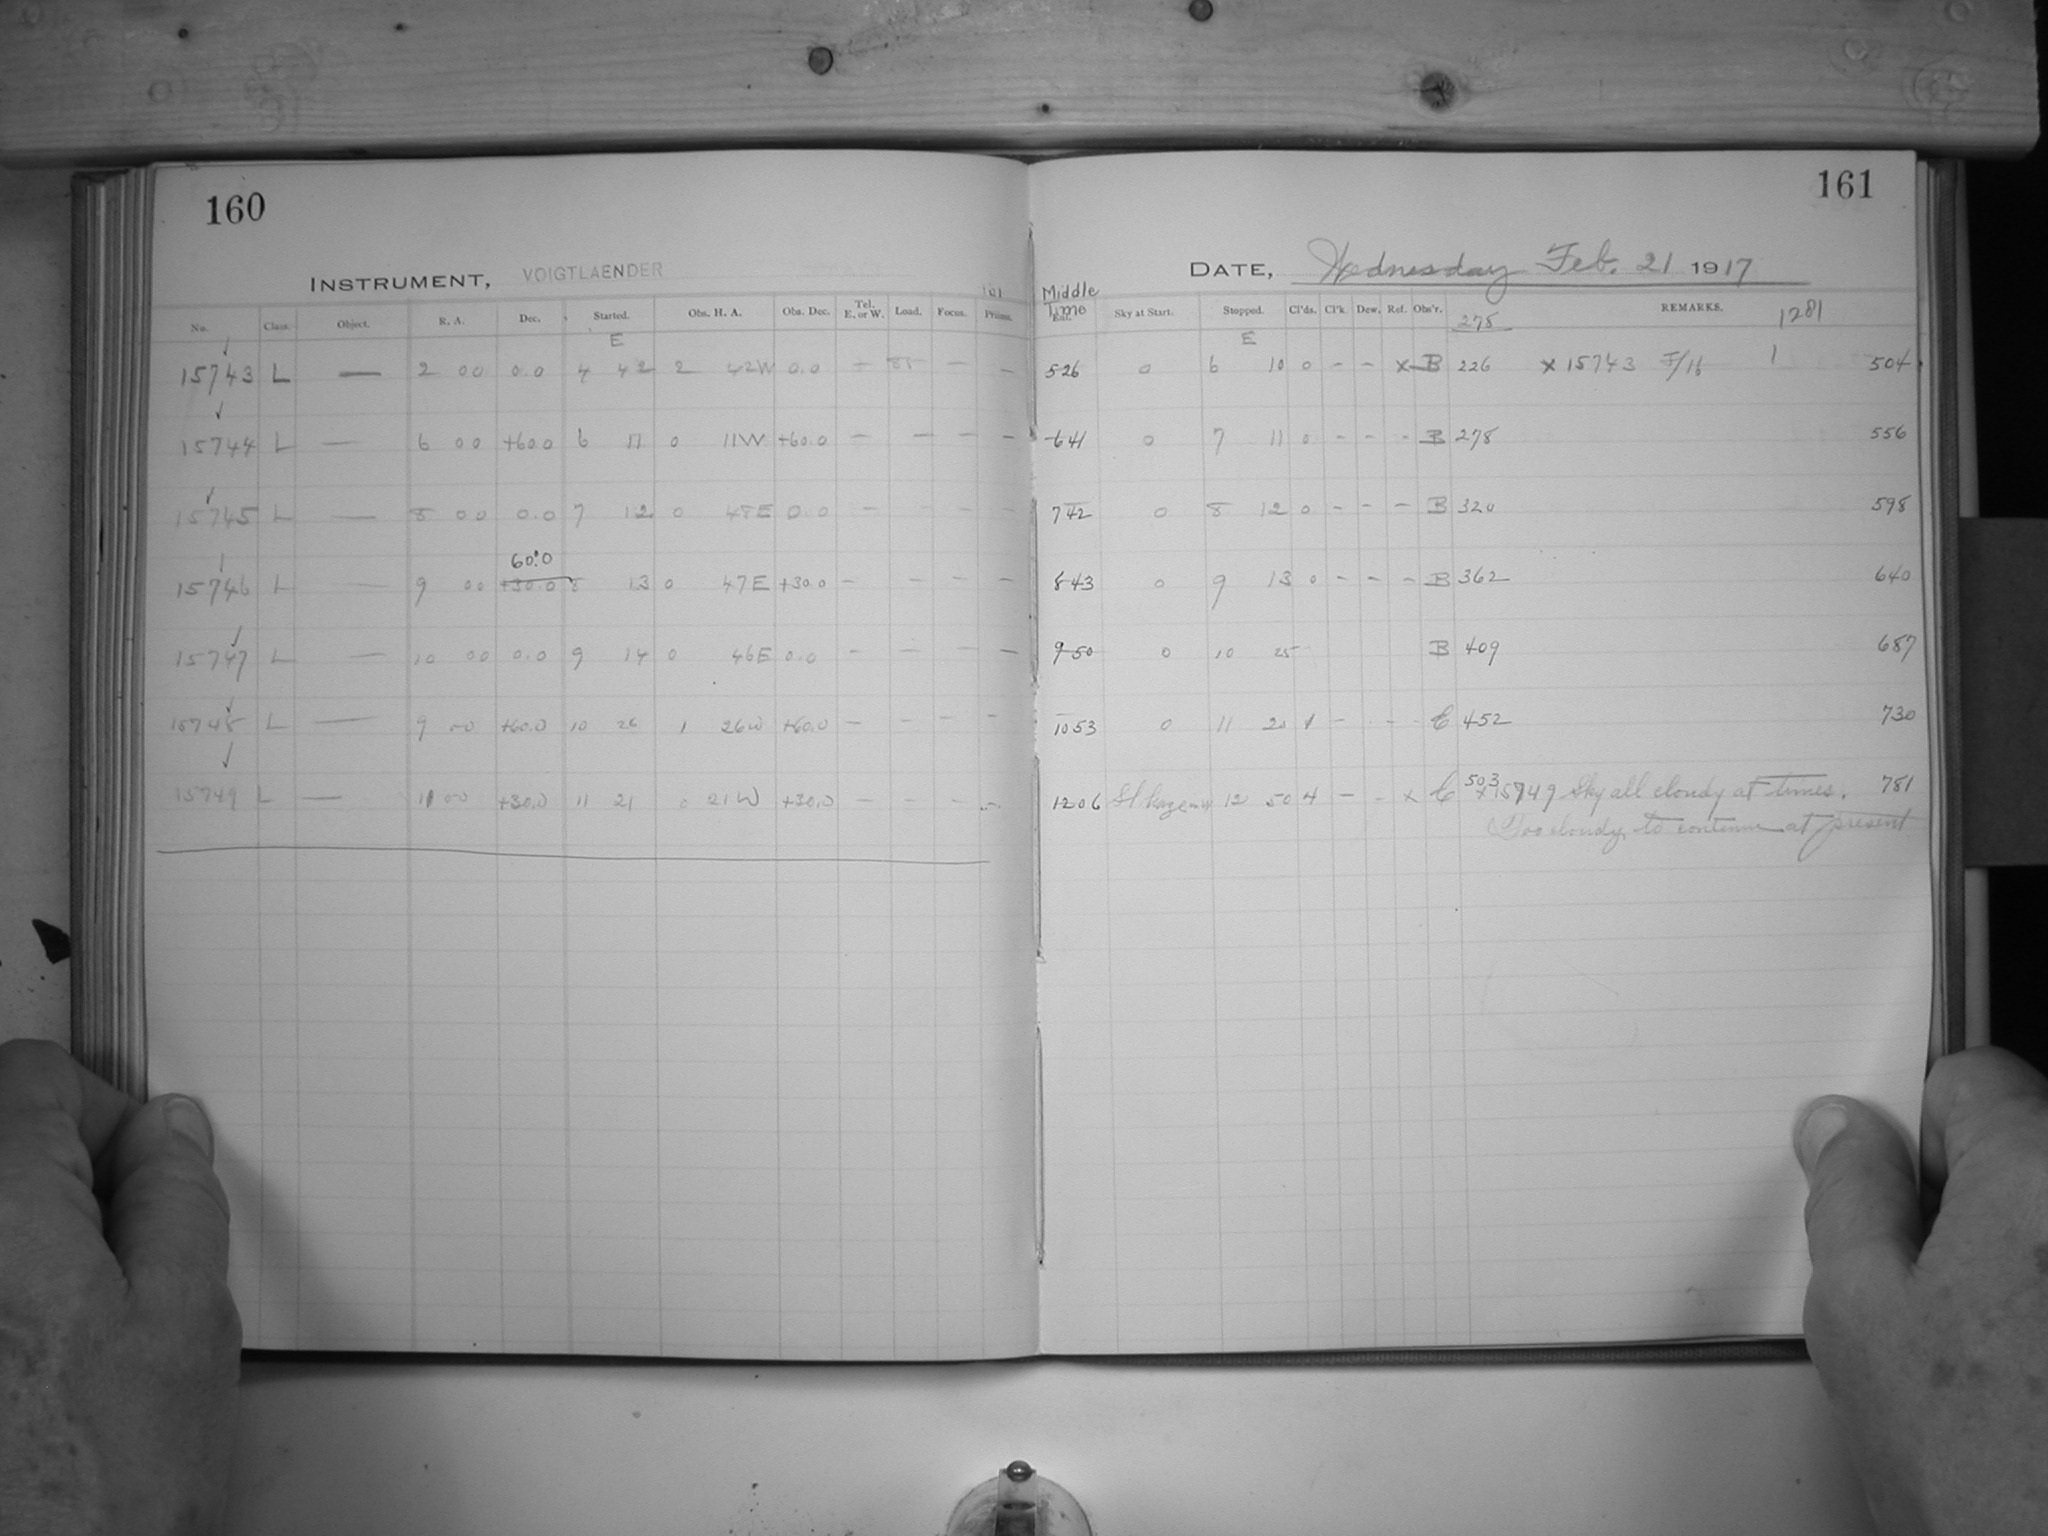 160
161
INSTRUMENT, VOIGTLAENDER
DATE, Wednesday Feb. 21 1917
No. Class. Object. R. A. Dec. Started. Obs. H. A. Obs. Dec. Tel. E. or W. Load. Focus. Prisms. Middle Time Sky at Start. Stopped. Cl'ds. Cl'k. Dew. Ref. Obs'r. 275 REMARKS. 1281
E E
15743 L — 2 00 0.0 4 42 2 42W 0.0 — — — 526 0 6 10 0 - - X B 226 X 15743 F/16 1 504
15744 L — 6 00 +60.0 6 11 0 11W +60.0 — — — — 641 0 7 11 0 - - - B 278 556
15745 L — 8 00 0.0 7 12 0 48E 0.0 — — — — 742 0 8 12 0 - - - B 320 598
60.0
15746 L — 9 00 +30.0 8 13 0 47E +30.0 — — — — 843 0 9 13 0 - - - B 362 640
15747 L — 10 00 0.0 9 14 0 46E 0.0 — — — — 950 0 10 25 B 409 687
15748 L — 9 00 +60.0 10 26 1 26W +60.0 — — — — 1053 0 11 20 1 - - - E 452 730
15749 L — 11 00 +30.0 11 21 0 21W +30.0 — — — — 1206 12 50 4 - - x E 503 x 15749 Sky all cloudy at times. 781
Too cloudy to continue at present